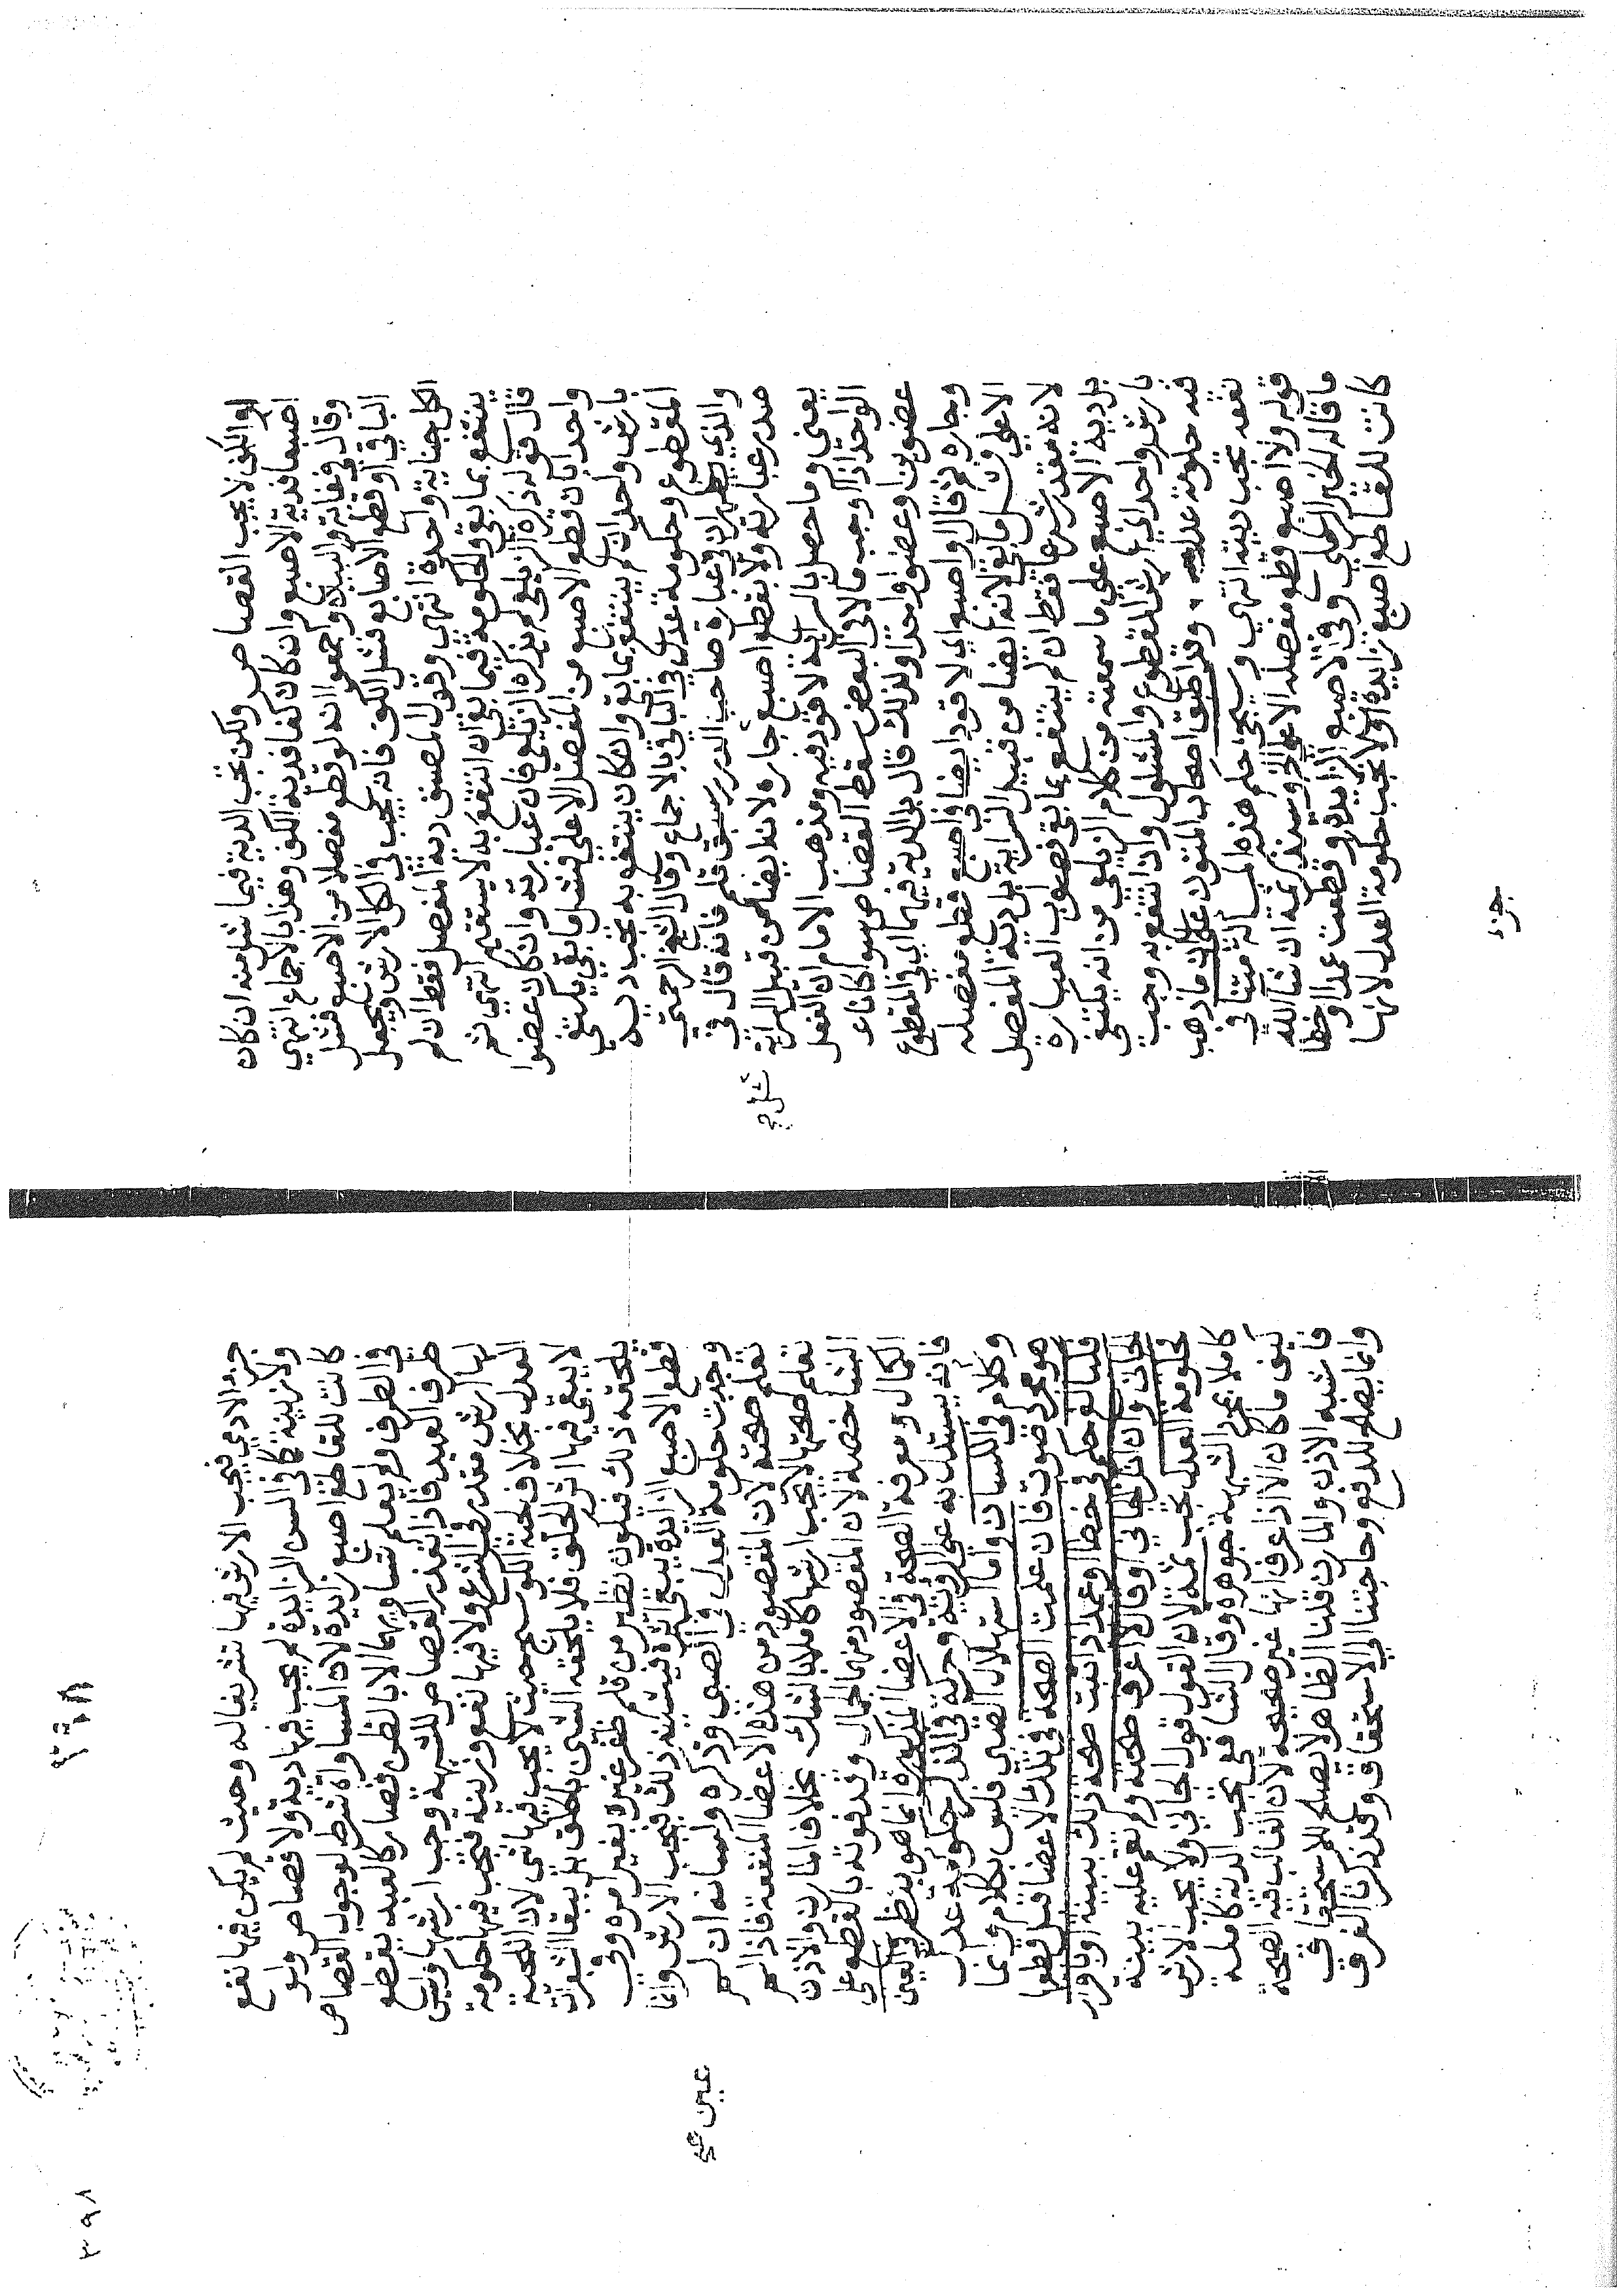 او الكف لا يجب القصاص ولكن تجب الدية فيما شل منه ان كان
اصبعا فدية الاصبع وان كان كفا فدية الكف وهذا بالاجماع انتهى
وقال في غاية البيان واجمعوا انه لو قطع مفصلا من الاصبع فشل
الباقي او قطع الاصابع فشل الكف فانه يجب في الكل الارش ويجعل
الكل جناية واحدة انتهى وقول المصنف دية المفصل فقط ان لم
ينتفع بما بقي والحكومة فيما بقي ان انتفع به لا يستقيم انتهى ثم
قال قوله ذكره الزيلعي لم يذكره الزيلعي فان عبارته وان كان عضوا
واحدا بان قطع الاصبع من المفصل الاعلى فشل ما بقي يكتفي
بارش واحد ان لم ينتفع بما بقي وان كان ينتفع به تجب دية
المقطوع وحكومة عدل في الباقي بالاجماع وقال الشيخ الرحمتي
والذي يظهر ان في عبارة صاحب الدرر سبق قلم فانه قال في
صدر عبارته ولا بقطع اصبع شل جاره لانه ايضا من قبيل السراية
يعني وما حصل بالسراية لا قود فيه ومذهب الامام ان الفعل
الواحد اذا اوجب مالا في البعض سقط القصاص سواء كانا
عضوين او عضوا واحدا ولذلك قال بل الدية فيهما اي في المقطوع
وجاره ثم قال او اصبع اي لا قود ايضا في اصبع قطع مفصله
الاعلى فشل ما بقي لانه ايضا من قبيل السراية بل دية المفصل
لانه مقدر شرعا فقط ان لم ينتفع بما بقي فصواب العبارة
بل دية الاصبع على ما سمعته من كلام الزيلعي من انه يكتفى
بارش واحد اي ارش المقطوع والمشلول وان انتفع به وجب
فيه حكومة عدل وقد اطبق اصحاب المتون على ان ما ذهب
نفعه تجب ديته انتهى وسيجيء حكم هذه المسألة متنا في
قوله ولا اصبع قطع مفصله الاعلى الخ وسنذكر ثمة ان شا الله
ما قاله الخير الرملي وفي الاصبع الزايدة لو قطعت عمدا او خطا
كانت للقاطع اصبع زايدة او لا تجب حكومة العدل لانها
جزء
جزء الادمي فيجب الارش فيها تشريفا له وحيث لم يكن فيها نفع
ولا زينة كما في السن الزايدة لم يجب فيها دية ولا قصاص ولو
كانت للقاطع اصبع زايدة لان المساواة شرط لوجوب القصاص
في الطرف ولم يعلم تساويهما الا بالظن فصار كالعبد يقطع
طرف العبد فاذا تعذر القصاص للشبهة وجب ارشها وليس
لها ارش مقدر في الشرع ولا فيها نفع وزينة فتجب فيها حكومة
العدل بخلاف لحية الكوسج حيث لا يجب فيها شي لان اللحية
لا يبقى فيها اثر الحلق فلا يلحقه الشين بالحلق بل ببقا الشعرات
يلحقه ذلك فيكون نظير من قلم ظفر غيره بغير امره وفي
قطع الاصبع الزايدة يبقى اثره فيشينه ذلك فيجب الارش وانما
وجبت حكومة العدل في عين الصبي وذكره ولسانه ان لم
تعلم صحته لان المقصود من هذه الاعضا المنفعة فاذا لم
تعلم صحتها لا تجب ارشها كاملا بالشك بخلاف المارن والاذن
الشاخصة لان المقصود منهما الجمال وقد فوته بالقطع على
الكمال ومعرفة الصحة في الاعضا المذكورة انما هو بنظر في العين
فانه يستدل به على الروية وحركة في الذكر حكومة عدل
وكلام في اللسان واما استهلال الصبي فليس بكلام وانما
هو مجرد صوت فان علمت الصحة في تلك الاعضا قبل قطعها
فكبالغ حكم في خطا وعمد اذا ثبت صحة ذلك ببينة او باقرار
الجاني وان انكر الجاني او قال لا اعرف صحته ولم تقم عليه بينة
فحكومة العدل تجب ثمة لان القول قول الجاني ولا يجب الارش
كاملا بمجرد الشبهة جوهرة وقال الشافعي تجب الدية كاملة
كيف ما كان الا اذا عرف انها غير صحيحة لان الغالب فيه الصحة
فاشبه الاذن والمارن قلنا الظاهر لا يصلح للاستحقاق
وانما يصلح للدفع وحاجتنا الى الاستحقاق وقد ذكرنا الفرق
٣٩٨